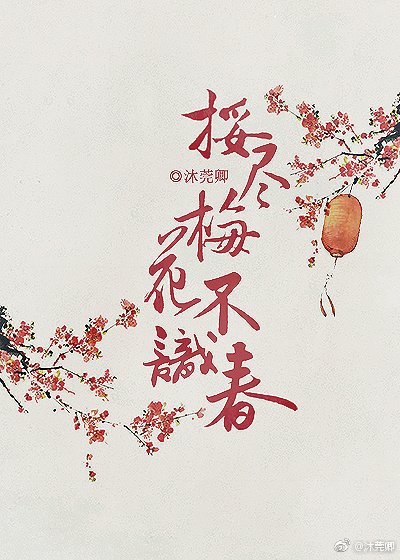 挼尽
梅花
不識春
◎沐莞卿
@沐莞卿